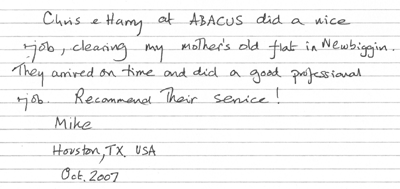 Chris & Harry at ABACUS did a nice
job, clearing my mother's old flat in Newbiggin.
They arrived on time and did a good professional
job. Recommend Their service!
Mike
Houston, TX. USA
Oct. 2007